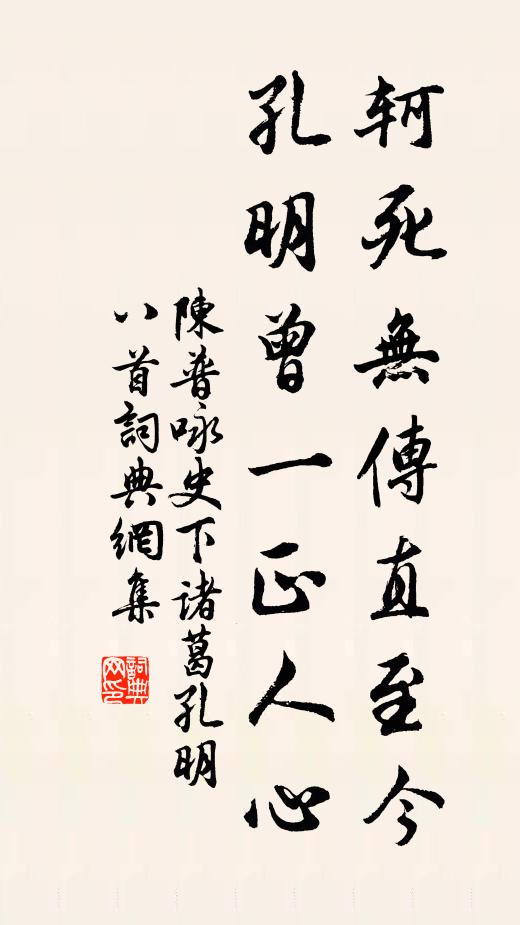 軻死無傳直至今
孔明曾一正人心
陳普咏史下諸葛孔明
八首詞典網集
詞典网印